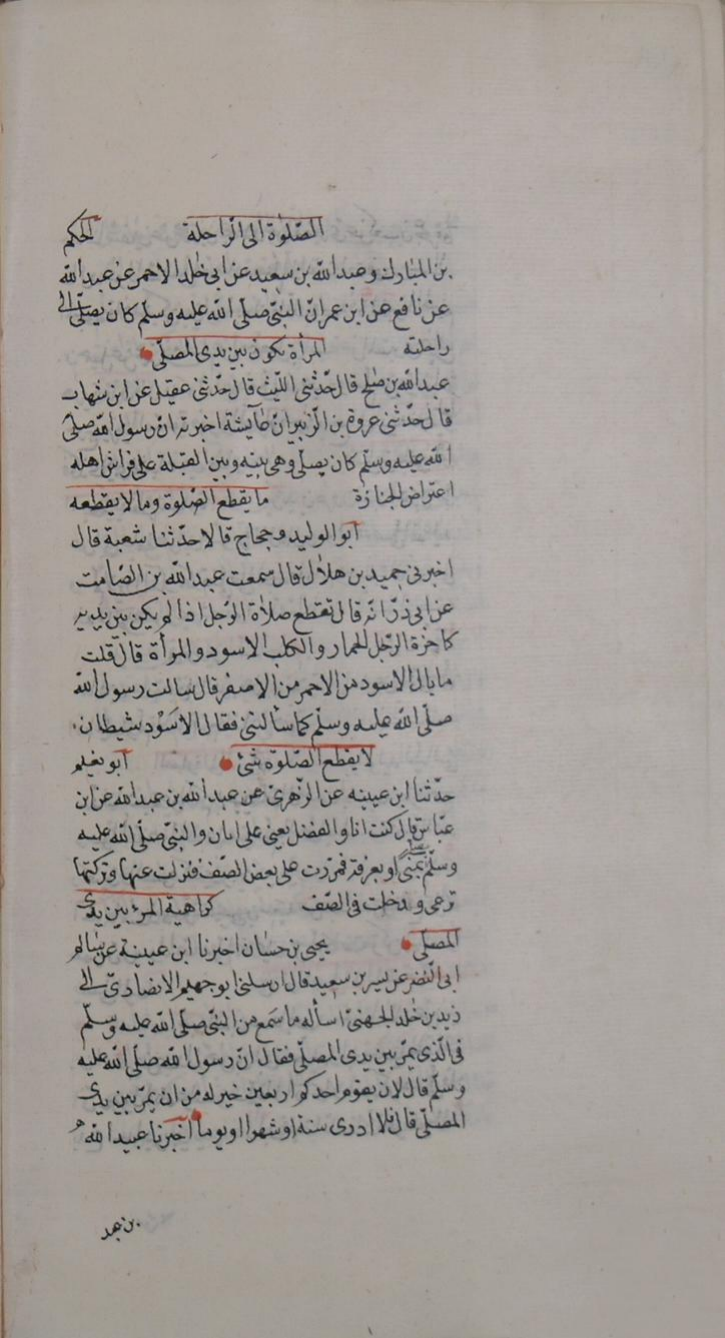 الصّلوٰة الى الرّاحلة الحكم
بن المبارك وعبدالله بن سعيد عن ابى خٰلد الاحمر عن عبدالله
عن نافع عن ابن عمر انّ النبّى صلّى الله عليه وسلّم كان يصلّى الى
راحلته المرأة تكون بين يدى المصلّى
عبدالله بن صٰلح قال حدّثنى اللّيث قال حدّثنى عقيل عن ابن شهاب
قال حدّثنى عروة بن الزّبير انّ عآيشة اخبرته انّ رسول الله صلّى
الله عليه وسلّم كان يصلّى وهى بينه وبين القبلة على فراش اهله
اعتراض الجنازة ما يقطع الصّلوة وما لا يقطعه
ابو الوليد وحجاج قالا حدّثنا شعبة قال
اخبرنى حميد بن هلال قال سمعت عبدالله بن الصّامت
عن ابى ذرّ انّه قال تقطع صلاة الرّجل اذا لم يكن بين يديه
كاخرة الرّجل الحمار والكلب الاسود والمرأة قال قلت
ما بال الاسود من الاحمر من الاصفر قال سالت رسول الله
صلّى الله عليه وسلّم كما سألتنى فقال الاسَوْد شيطان
لا يقطع الصّلوة شئ ابو نعيم
حدّثنا ابن عيينه عن الزّهرىّ عن عبدالله بن عبدالله عن ابن
عبّاس قال كنت انا والفضل يعنى على اتان والنبّى صلّى الله عليه
وسلّم يصلى بمنى او بعرفة فمررت على بعض الصّف فنزلت عنها وتركتها
ترعى ودخلت فى الصّف كراهية المرء بين يدى
المصلّى يحيى بن حسّان اخبرنا ابن عيينة عن سالم
ابى النّضر عن بسر بن سعيد قال ارسلنى ابو جهيم الانصارىّ الى
زيد بن خٰلد الجهنىّ اسأله ما سمع من النبّى صلّى الله عليه وسلّم
فى الّذى يمرّ بين يدى المصلّى فقال انّ رسول الله صلّى الله عليه
وسلّم قال لان يقوم احدكم اربعين خير له من ان يمرّ بين يدى
المصلّى قال فلا ادرى سنة او شهرا او يوما اخبرنا عبيدالله
بن عبد